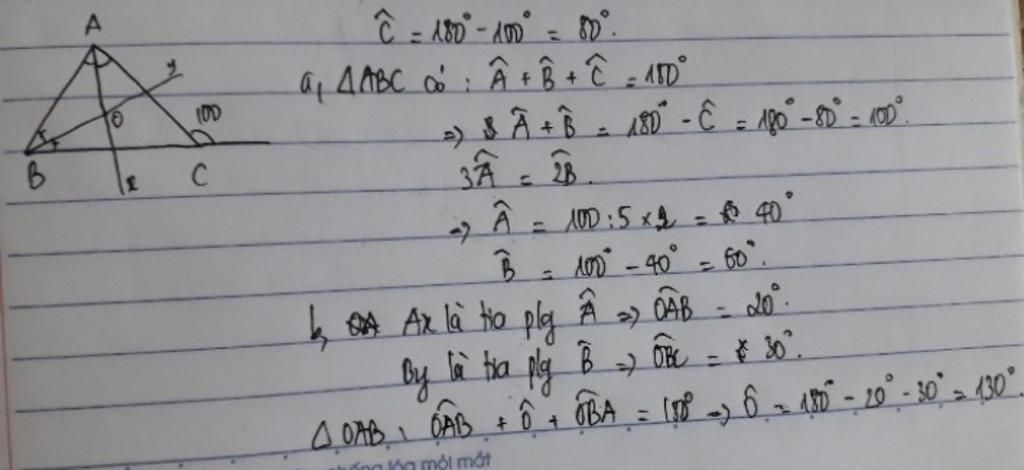 A
y
O
100
B
x
C
Ĉ = 180° - 100° = 80°.
a, △ABC có : Â + B̂ + Ĉ = 180°
=> Â + B̂ = 180° - Ĉ = 180° - 80° = 100°.
3Â = 2B̂.
=> Â = 100 : 5 x 2 = 40°
B̂ = 100° - 40° = 60°.
b, Ax là tia plg Â => OÂB = 20°.
By là tia plg B̂ => OB̂C = 30°.
△OAB, OÂB + Ô + OB̂A = 180° => Ô = 180° - 20° - 30° = 130°.
chống lóa mỏi mắt